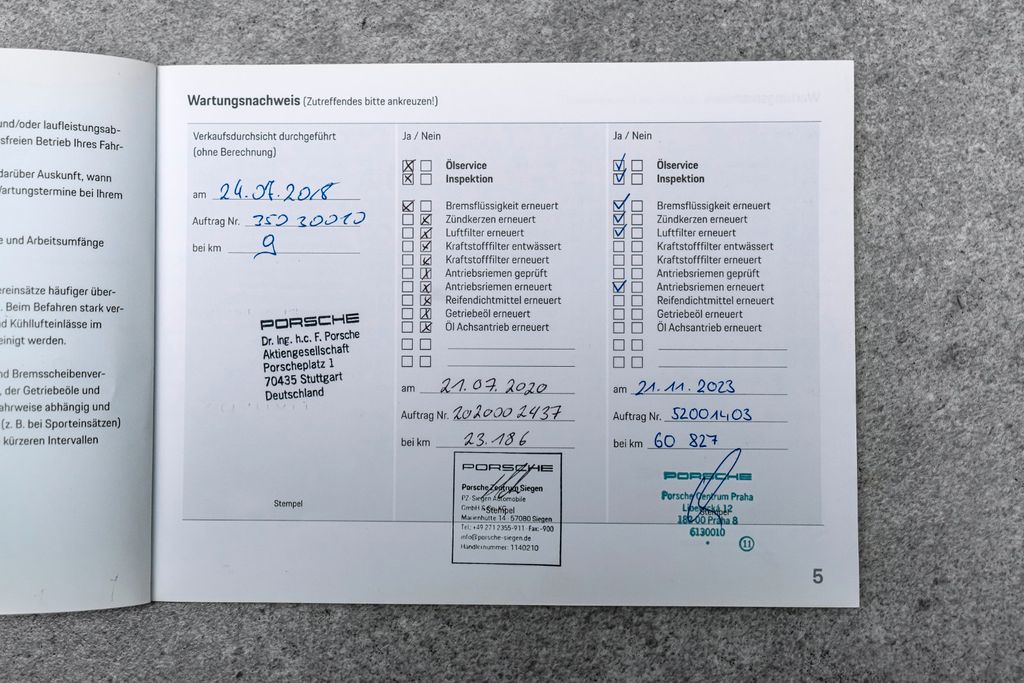 und/oder laufleistungsab-
sfreien Betrieb Ihres Fahr-
darüber Auskunft, wann
Wartungstermine bei Ihrem
e und Arbeitsumfänge
ereinsätze häufiger über-
. Beim Befahren stark ver-
d Kühllufteinlässe im
einigt werden.
nd Bremsscheibenver-
, der Getriebeöle und
ahrweise abhängig und
(z. B. bei Sporteinsätzen)
kürzeren Intervallen
Wartungsnachweis (Zutreffendes bitte ankreuzen!)
Verkaufsdurchsicht durchgeführt
(ohne Berechnung)
am 24.07.2018
Auftrag Nr. 350 30010
bei km 9
PORSCHE
Dr. Ing. h.c. F. Porsche
Aktiengesellschaft
Porscheplatz 1
70435 Stuttgart
Deutschland
Stempel
Ja / Nein
Ölservice
Inspektion
Bremsflüssigkeit erneuert
Zündkerzen erneuert
Luftfilter erneuert
Kraftstofffilter entwässert
Kraftstofffilter erneuert
Antriebsriemen geprüft
Antriebsriemen erneuert
Reifendichtmittel erneuert
Getriebeöl erneuert
Öl Achsantrieb erneuert
am 21.07.2020
Auftrag Nr. 202000 2437
bei km 23.186
PORSCHE
Porsche Zentrum Siegen
PZ Siegen Automobile
GmbH
Stempel
Marienhütte 14 · 57080 Siegen
Tel.: +49 271 2355-911 · Fax: -900
info@porsche-siegen.de
Händlernummer: 1140210
Ja / Nein
Ölservice
Inspektion
Bremsflüssigkeit erneuert
Zündkerzen erneuert
Luftfilter erneuert
Kraftstofffilter entwässert
Kraftstofffilter erneuert
Antriebsriemen geprüft
Antriebsriemen erneuert
Reifendichtmittel erneuert
Getriebeöl erneuert
Öl Achsantrieb erneuert
am 21.11.2023
Auftrag Nr. 52001403
bei km 60 827
PORSCHE
Porsche Centrum Praha
Liberecká 12
Stempel
182 00 Praha 8
6130010
11
5